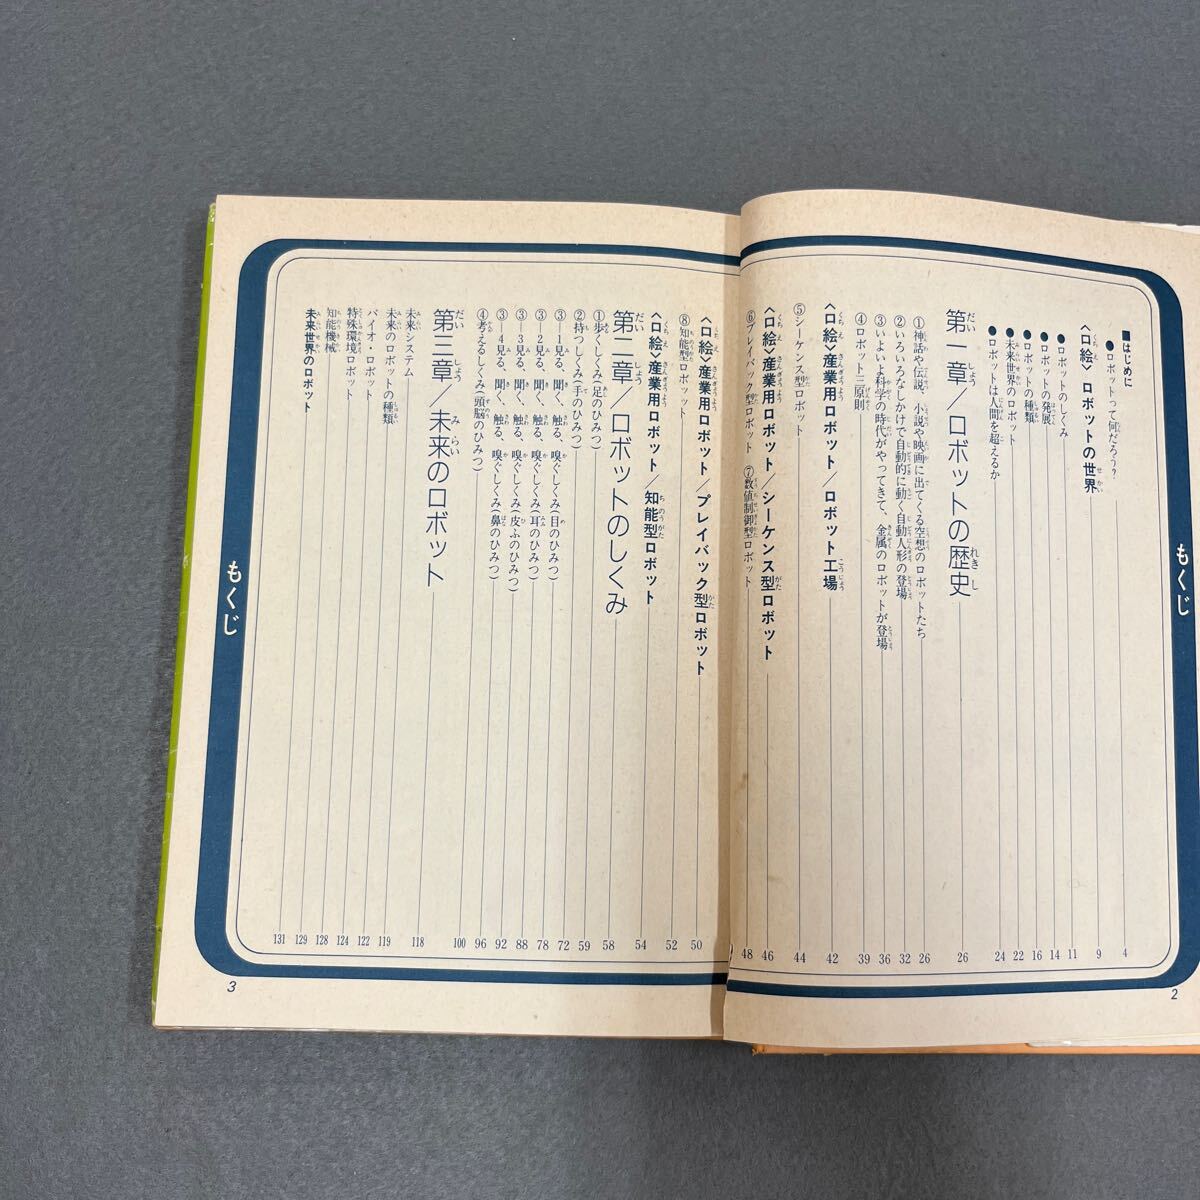 もくじ
■はじめに
●ロボットって何だろう？ 4
〈口絵〉ロボットの世界 9
●ロボットのしくみ 11
●ロボットの発展 14
●ロボットの種類 16
●未来世界のロボット 22
●ロボットは人間を超えるか 24
第一章／ロボットの歴史 26
①神話や伝説、小説や映画に出てくる空想のロボットたち 26
②いろいろなしかけで自動的に動く自動人形の登場 32
③いよいよ科学の時代がやってきて、金属のロボットが登場 36
④ロボット三原則 39
〈口絵〉産業用ロボット／ロボット工場 42
⑤シーケンス型ロボット 44
〈口絵〉産業用ロボット／シーケンス型ロボット 46
⑥プレイバック型ロボット ⑦数値制御型ロボット 48
2
〈口絵〉産業用ロボット／プレイバック型ロボット 50
⑧知能型ロボット 52
〈口絵〉産業用ロボット／知能型ロボット 54
第二章／ロボットのしくみ 58
①歩くしくみ（足のひみつ） 59
②持つしくみ（手のひみつ） 62
③—1見る、聞く、触る、嗅ぐしくみ（目のひみつ） 72
③—2見る、聞く、触る、嗅ぐしくみ（耳のひみつ） 78
③—3見る、聞く、触る、嗅ぐしくみ（皮ふのひみつ） 88
③—4見る、聞く、触る、嗅ぐしくみ（鼻のひみつ） 92
④考えるしくみ（頭脳のひみつ） 96
第三章／未来のロボット 100
未来システム 118
未来のロボットの種類 119
バイオ・ロボット 122
特殊環境ロボット 124
知能機械 128
未来世界のロボット 129
131
もくじ
3